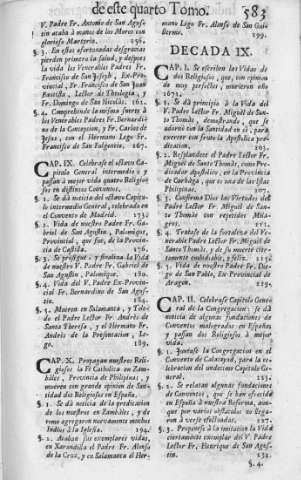 de este quarto Tomo. 583
V. Padre Fr. Antonio de San Agus-
tin ataba à manos de los Moros con
glorioso Martyrio. 256.
§. 3. En estas afortunadas desgracias
pierden primero la salud, y despues
la vida los Venerables Padres Fr.
Francisco de San Joseph, Ex-Pro-
vincial, Fr. Francisco de San Juan
Bautista, Lector de Theologia, y
Fr. Domingo de San Nicolàs. 262.
§. 4. Comprehende la misma suerte à
los Venerables Padres Fr. Bernardi-
no de la Concepcion, y Fr. Carlos de
Jesus, con el Hermano Lego Fr.
Francisco de San Fulgencio. 267.
CAP. IX. Celebrase el octavo Capi-
tulo General intermedio; y
passan à mejor vida quatro Religio-
sos en distintos Conventos.
§. 1. Se dà noticia del octavo Capitu-
lo intermedio General, celebrado en
el Convento de Madrid. 273.
§. 2. Vida de nuestro Padre Fr. Ga-
briel de San Agustin, Palomique,
Provincial, que fue, de la Provin-
cia de Castilla. 276.
§. 3. Se prosigue, y finaliza la Vida
de nuestro V. Padre Fr. Gabriel de
San Agustin, Palomique. 280.
§. 4. Vida del V. Padre Ex-Provin-
cial Fr. Bernardino de San Agus-
tin. 284.
§. 5. Mueren en Salamanca, y Tole-
do el Padre Lector Fr. Andrès de
Santa Theresa, y el Hermano Fr.
Andrès de la Presentacion, Le-
go. 289.
CAP. X. Propagan nuestros Reli-
giosos la Fè Catholica en Zam-
bales, Provincia de Philipinas, y
mueren con grande opinion de San-
tidad dos Religiosos en España.
§. 1. Se dà noticia de la predicacion
de los nuestros en Zambales, y de
como agregaron nuevamente muchos
Indios à la Iglesia. 294.
§. 2. Acaban sus exemplares vidas,
en Xarandilla el Padre Fr. Alonso
de la Cruz, y en Salamanca el Her-
mano Lego Fr. Alonso de San Gui-
llermo. 299.
DECADA IX.
CAP. I. Se escriben las Vidas de
dos Religiosos, que, con opinion
de muy perfectos, murieron año
1672.
§. 1. Se dà principio à la Vida del
V. Padre Lector Fr. Miguel de San-
to Thomàs, demostrando, que se
adornò con la Santidad en sì, para
exercer con fruto la Apostolica pre-
dicacion. 203.
§. 2. Resplandece el Padre Lector Fr.
Miguel de Santo Thomàs, como Pre-
dicador Apostolico, en la Provincia
de Caràga, que es una de las Islas
Philipinas. 207.
§. 3. Confirma Dios las Virtudes del
V. Padre Lector Fr. Miguel de San-
to Thomàs con repetidos Mila-
gros. 212.
§. 4. Tratase de la floralisa del Ve-
nerable Padre Lector Fr. Miguel de
Santo Thomàs, y de su muerte cier-
tamente embidiable, y feliz. 222.
§. 5. Vida de nuestro Padre Fr. Die-
go de San Pablo, Ex-Provincial de
Aragon. 229.
CAP. II. Celebrase Capitulo Gene-
ral de la Congregacion: Se dà
noticia de algunas fundaciones de
Conventos malogradas en España;
y passan dos Venerables à mejor
vida.
§. 1. Juntase la Congregacion en el
Convento de Calatayud, para la ce-
lebracion del undecimo Capitulo Ge-
neral. 233.
§. 2. Se relatan algunas fundaciones
de Conventos, que se han ofrecido
en España à nuestra Reforma, aun-
que por varios obstaculos no llega-
ron à verse efectuadas. 237.
§. 3. Proponese à la imitacion la Vida
ciertamente exemplar del V. Padre
Lector Fr. Henrique de San Agus-
tin.
§. 4.